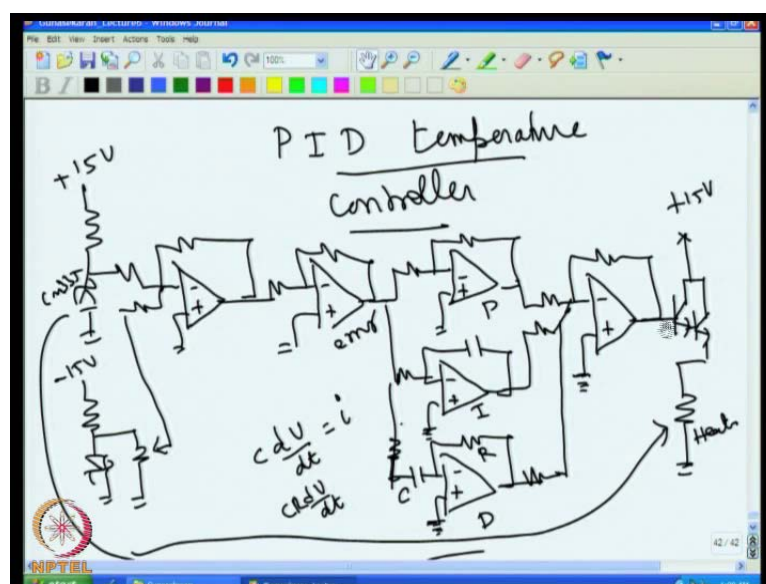 Gunasekaran_Lecture6 - Windows Journal
File Edit View Insert Actions Tools Help
100%
B I
PID temperature
controller
+15V
+15V
-
+
-
+
error
-
+
P
-
+
-15V
-
+
I
C dV/dt = i
CR dV/dt
R
C
-
+
D
Heater
NPTEL
42 / 42
start